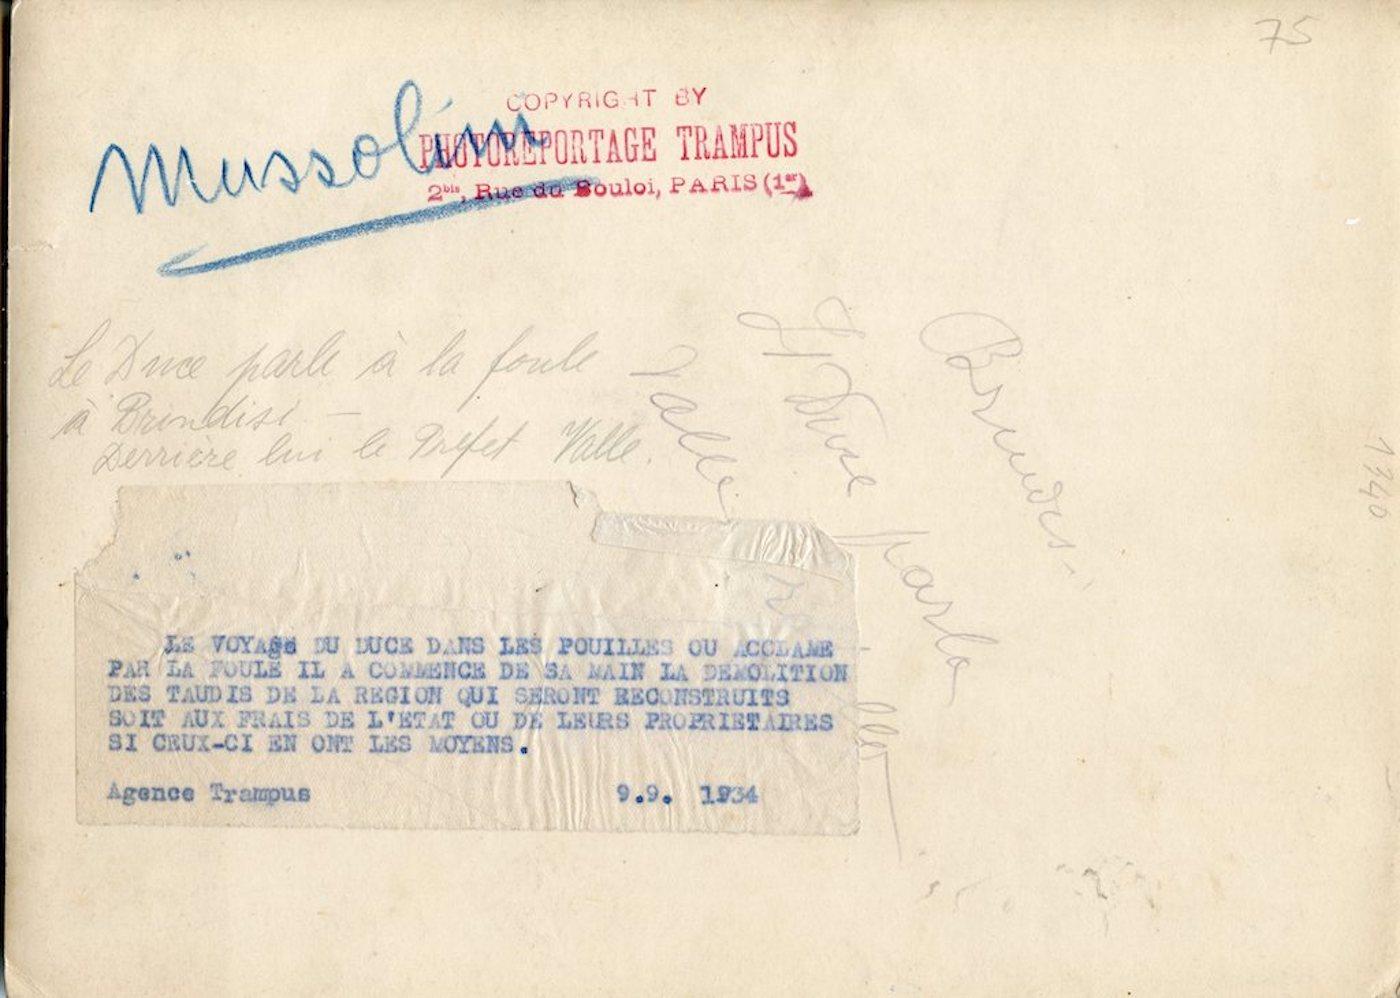 75
Mussolini
COPYRIGHT BY
PHOTOREPORTAGE TRAMPUS
2bis, Rue du Bouloi, PARIS (1er)
Le Duce parle à la foule
à Brindisi —
Derrière lui le Préfet Valle.
Brindisi
Il Duce parla
1340
LE VOYAGE DU DUCE DANS LES POUILLES OU ACCLAME
PAR LA FOULE IL A COMMENCE DE SA MAIN LA DEMOLITION
DES TAUDIS DE LA REGION QUI SERONT RECONSTRUITS
SOIT AUX FRAIS DE L'ETAT OU DE LEURS PROPRIETAIRES
SI CEUX-CI EN ONT LES MOYENS.
Agence Trampus 9.9. 1934